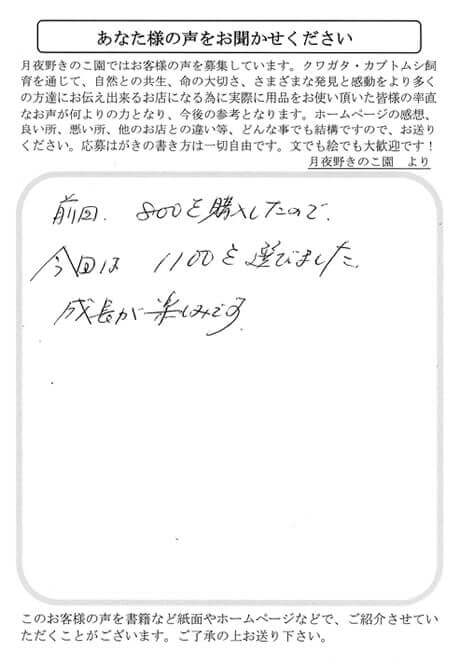 あなた様の声をお聞かせください
月夜野きのこ園ではお客様の声を募集しています。クワガタ・カブトムシ飼
育を通じて、自然との共生、命の大切さ、さまざまな発見と感動をより多く
の方達にお伝え出来るお店になる為に実際に用品をお使い頂いた皆様の率直
なお声が何よりの力となり、今後の参考となります。ホームページの感想、
良い所、悪い所、他のお店との違い等、どんな事でも結構ですので、お送り
ください。応募はがきの書き方は一切自由です。文でも絵でも大歓迎です！
月夜野きのこ園　より
前回、800を購入したので、
今回は 1100を選びました。
成長が楽しみです
このお客様の声を書籍など紙面やホームページなどで、ご紹介させてい
ただくことがございます。ご了承の上お送り下さい。